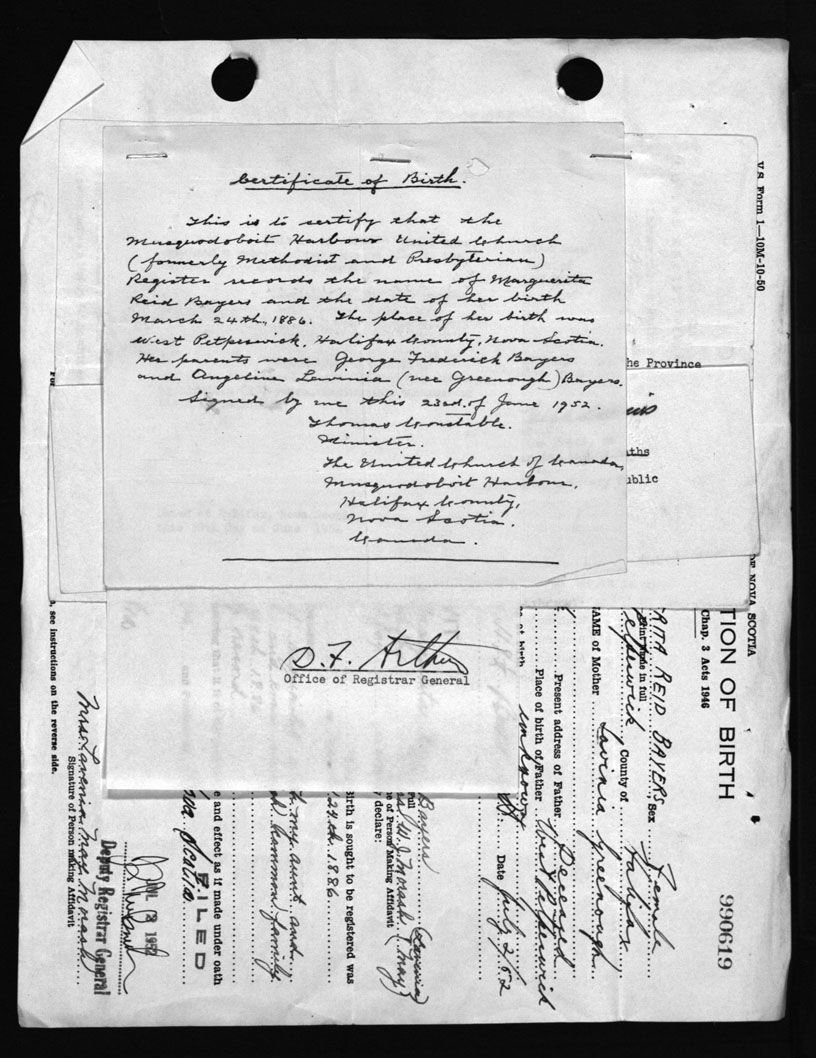 Certificate of Birth.
This is to certify that the
Musquodoboit Harbour United Church
(formerly Methodist and Presbyterian)
Register records the name of Marguerita
Reid Bayers and the date of her birth
March 24th, 1886. The place of her birth was
West Petpeswick, Halifax County, Nova Scotia.
Her parents were George Frederick Bayers
and Angeline Lavinia (nee Greenough) Bayers.
Signed by me this 23rd. of June 1952.
Thomas Constable.
Minister.
The United Church of Canada,
Musquodoboit Harbour,
Halifax County,
Nova Scotia.
Canada.
D. F. Arthur
Office of Registrar General
he Province
aths
ublic
V.S. Form 1—10M-10-50
OF NOVA SCOTIA
TION OF BIRTH
Chap. 3 Acts 1946
990619
RITA REID BAYERS Sex Female
Print name in full
etpeswick County of Halifax
NAME of Mother Lavinia Greenough
Present address of Father Deceased
Place of birth of Father West Petpeswick
unknown
Date July 2/52
Bayers (Lavinia
W. J. Morash (May)
me of Person Making Affidavit
y declare:
Birth is sought to be registered was
24th 1886
my aunt and
common family
e and effect as if made under oath
Scotia
FILED
JUL 3 1952
Deputy Registrar General
Mrs. Lavenia May Morash
Signature of Person making Affidavit
, see instructions on the reverse side.